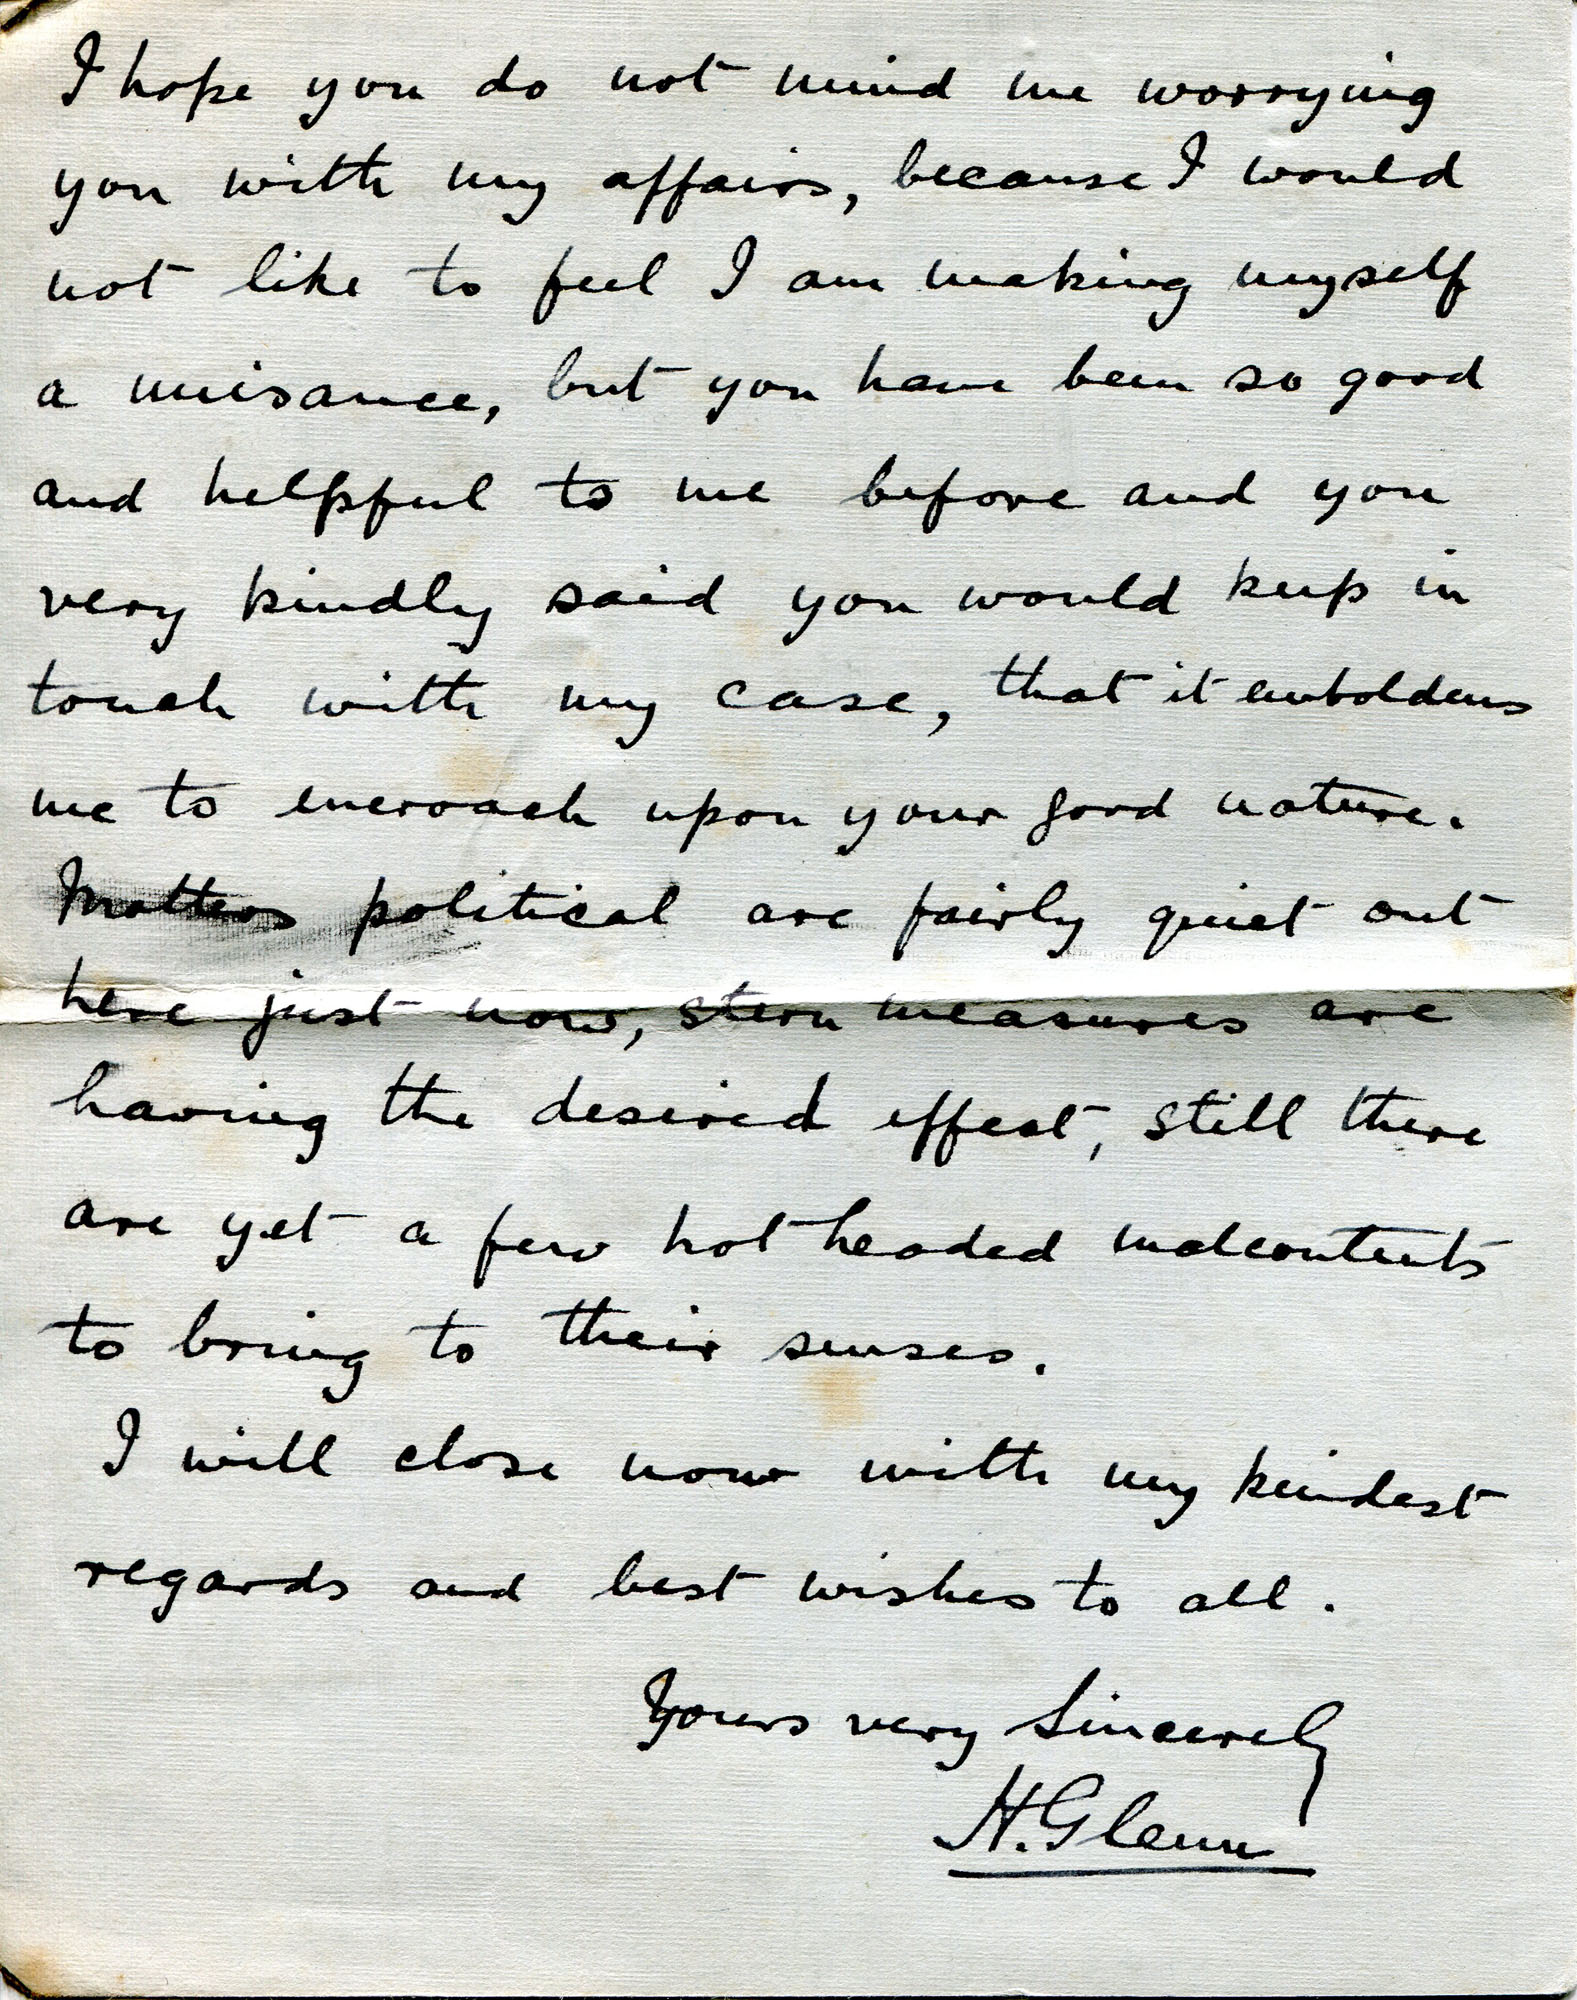 I hope you do not mind me worrying
you with my affairs, because I would
not like to feel I am making myself
a nuisance, but you have been so good
and helpful to me before and you
very kindly said you would keep in
touch with my case, that it emboldens
me to encroach upon your good nature.
Matters political are fairly quiet out
here just now, stern measures are
having the desired effect, still there
are yet a few hot headed malcontents
to bring to their senses.
I will close now with my kindest
regards and best wishes to all.
Yours very Sincerely
H. Glenn